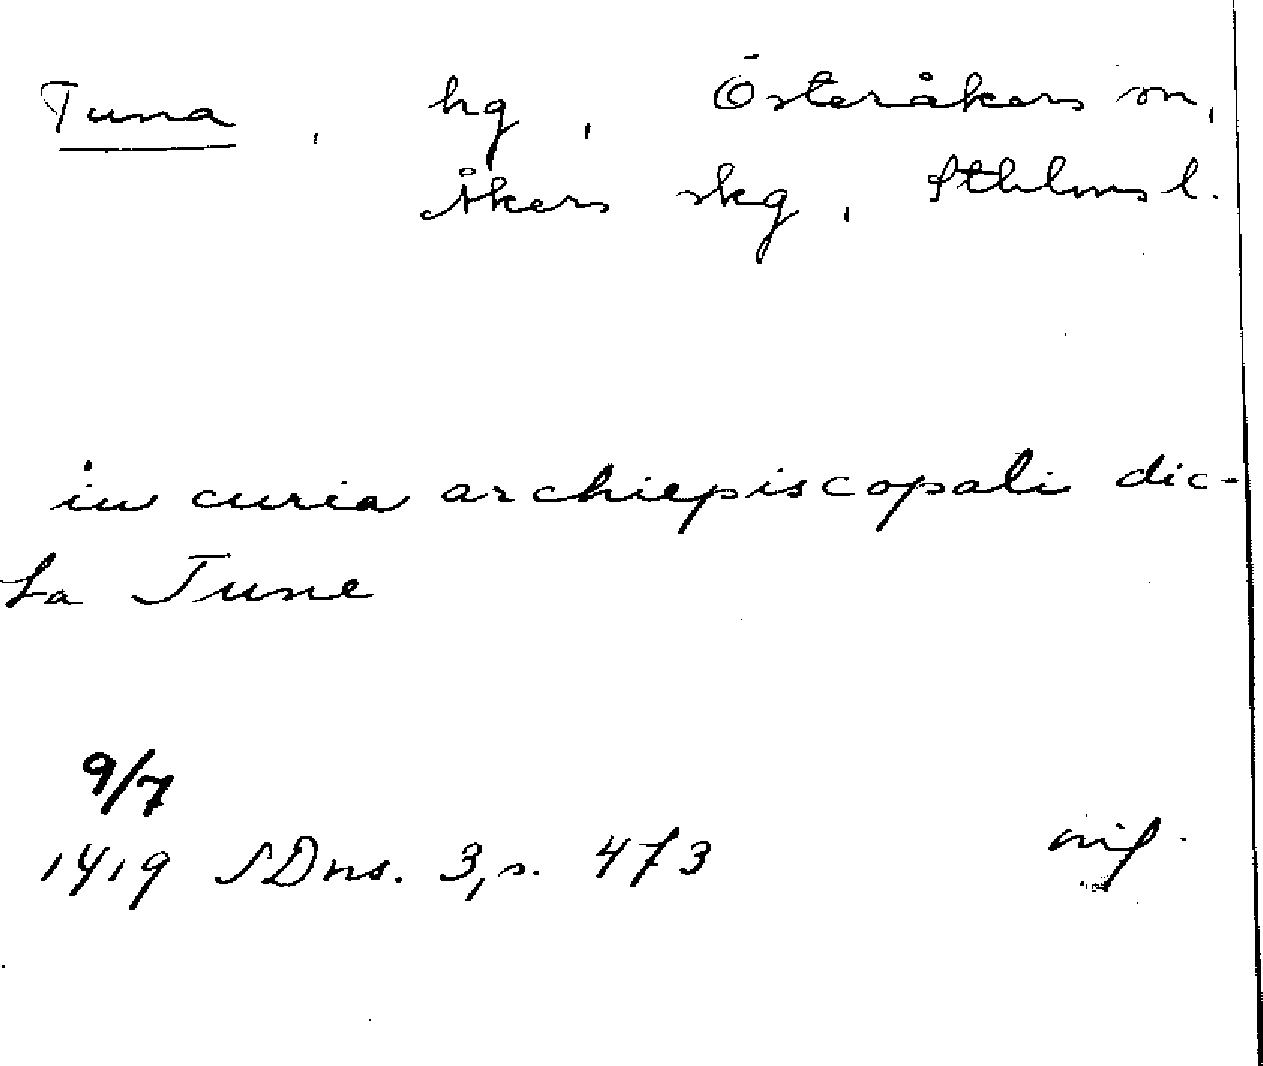 Tuna, hg, Österåkers sn,
Åkers skg, Sthlms l.
in curia archiepiscopali dic-
ta Tune
9/7
1419 SDns. 3, s. 473